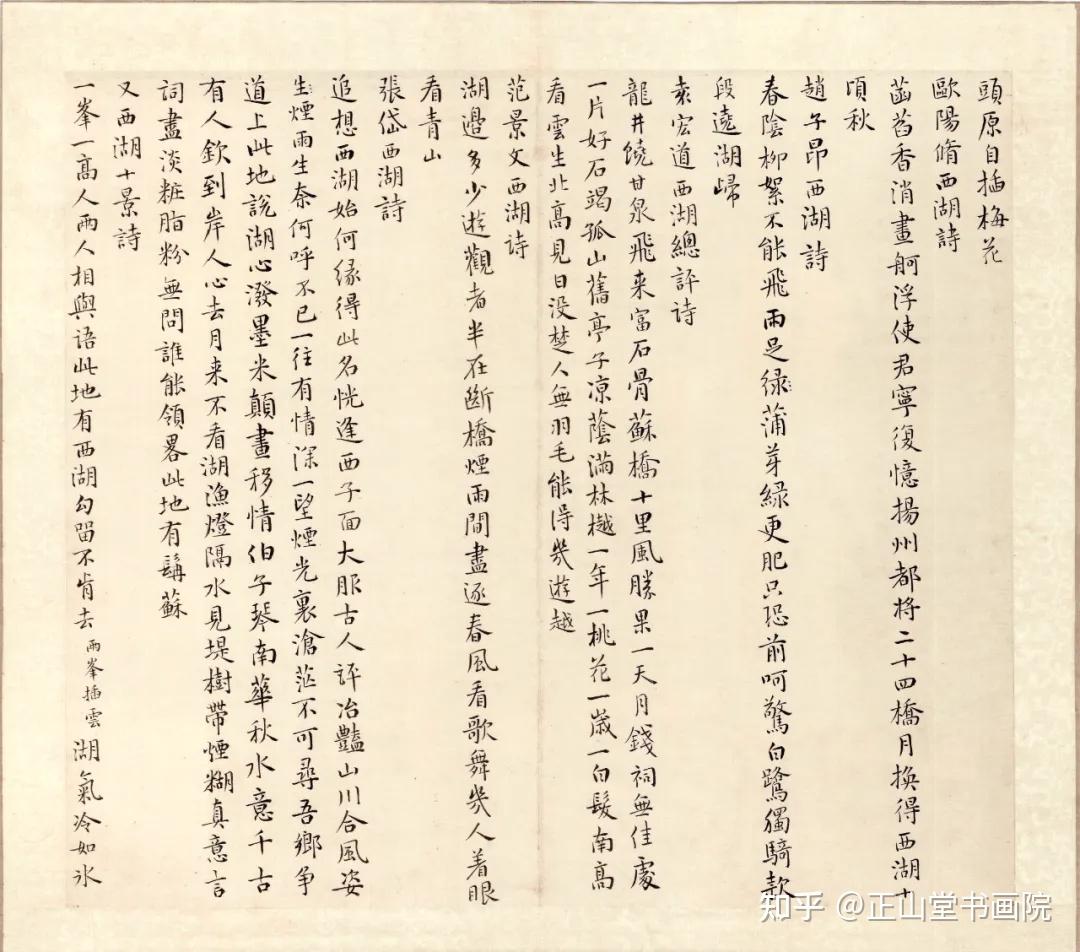 頭原自插梅花
歐陽脩西湖詩
菡萏香消畫舸浮使君寧復憶揚州都將二十四橋月換得西湖十
頃秋
趙子昂西湖詩
春陰柳絮不能飛雨足綠蒲芽綠更肥只恐前呵驚白鷺獨騎款
段遶湖歸
袁宏道西湖總評詩
龍井饒甘泉飛来富石骨蘇橋十里風勝果一天月錢祠無佳處
一片好石竭孤山舊亭子凉蔭滿林樾一年一桃花一歲一白髮南高
看雲生北高見日没楚人無羽毛能得幾遊越
范景文西湖诗
湖邊多少遊觀者半在斷橋煙雨間盡逐春風看歌舞幾人着眼
看青山
張岱西湖詩
追想西湖始何緣得此名恍逢西子面大服古人評冶豔山川合風姿
煙雨生奈何呼不已一往有情深一望煙光裏滄茫不可尋吾鄉争
道上此地說湖心潑墨米顛畫移情伯子琴南華秋水意千古
有人欽到岸人心去月来不看湖漁燈隔水見堤樹帶煙糊真意言
詞盡淡粧脂粉無問誰能領畧此地有髯蘇
又西湖十景詩
一峯一高人兩人相與语此地有西湖勾留不肯去兩峯插雲湖氣冷如氷
知乎 @正山堂书画院